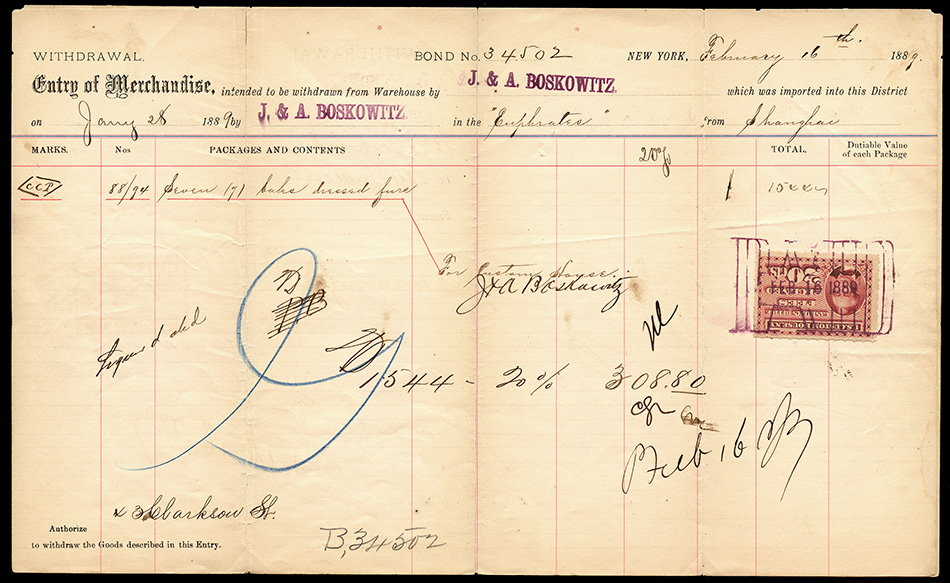 WITHDRAWAL. BOND No. 34502 NEW YORK, February 16th. 1889.
Entry of Merchandise, intended to be withdrawn from Warehouse by J. & A. BOSKOWITZ. which was imported into this District
on Jany 28 1889 by J. & A. BOSKOWITZ. in the "Euphrates" from Shanghai
MARKS. Nos PACKAGES AND CONTENTS 20% TOTAL. Dutiable Value of each Package
CCP 88/94 Seven (7) bales dressed furs 1
For Custom House.
J & A Boskowitz
FEB 16 1889
1544 - 20% 308.80
Feb 16
Clarkson St.
Authorize
to withdraw the Goods described in this Entry.
B, 34502